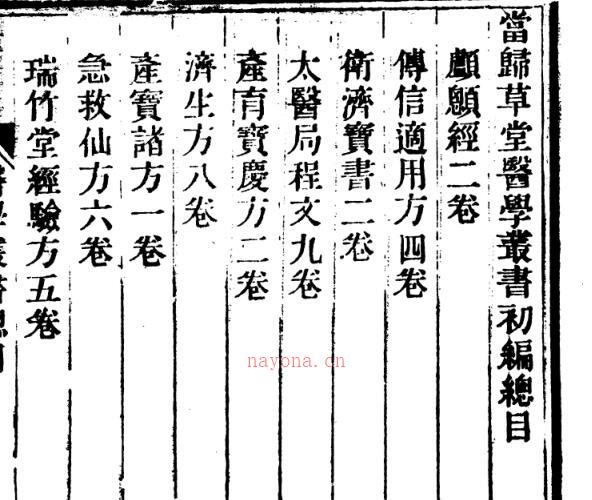 當歸草堂醫學叢書初編總目
顱顖經二卷
傳信適用方四卷
衛濟寶書二卷
太醫局程文九卷
產育寶慶方二卷
濟生方八卷
產寶諸方一卷
急救仙方六卷
瑞竹堂經驗方五卷
nayona.cn